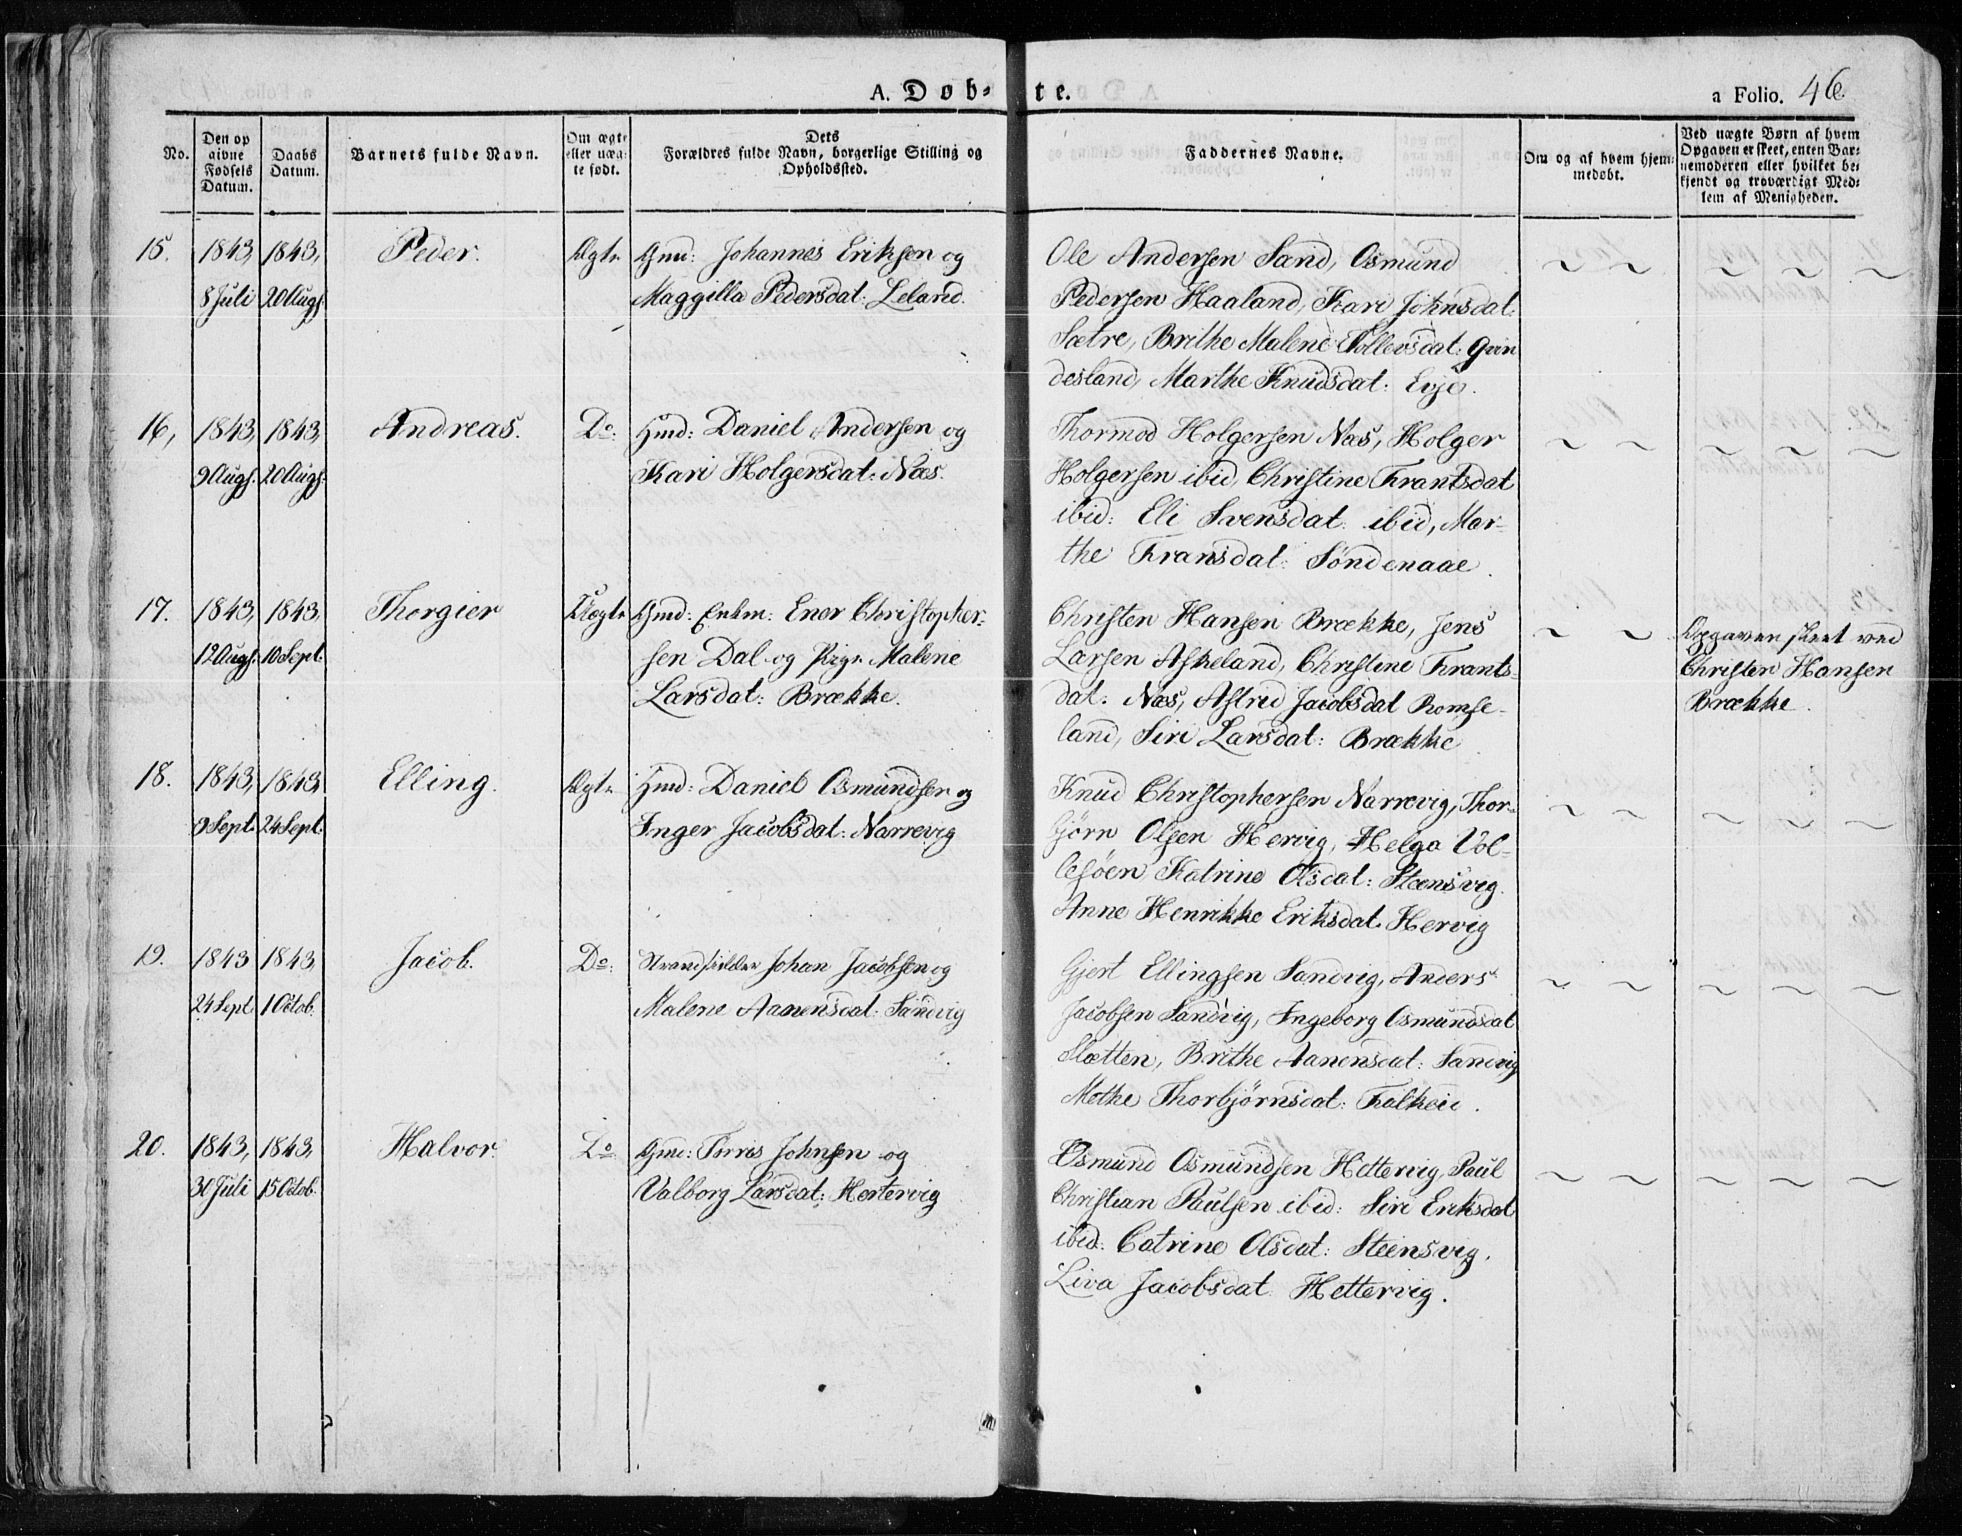 A. Døb-te.
a Folio. 46
No.
Den op
givne
Fødsels
Datum.
Daabs
Datum.
Barnets fulde Navn.
Om ægte
eller uæg-
te født.
Dets
Forældres fulde Navn, borgerlige Stilling og
Opholdssted.
Faddernes Navne.
Om og af hvem hjem-
medøbt.
Ved uægte Børn af hvem
Opgaven er skeet, enten Bar-
nemoderen eller hvilket be-
kjendt og troværdigt Med-
lem af Menigheden.
15. 1843, 1843, Peder. Ægte Gmd: Johannes Eriksen og
8 Juli 20 Augs. Maggilla Pedersdat: Leland.
Ole Andersen Sand, Osmund
Pedersen Haaland, Kari Johnsdat:
Sætre, Brithe Malene Tollevsdat: Qvin
desland, Marthe Knudsdat: Evje.
16, 1843, 1843, Andreas. Do: Hmd: Daniel Andersen og
9 Augs. 20 Augs. Kari Holgersdat: Næs.
Thormod Holgersen Næs, Holger
Holgersen ibid, Christine Frantsdat
ibid: Eli Svensdat: ibid, Mar-
the Fransdat: Søndenaae.
17. 1843, 1843, Thorgier Uægte Gmd: Enkm: Ener Christopher-
12 Augs. 10 Sept. sen Dal og Pige Malene
Larsdat: Brække.
Christen Hansen Brække, Jens
Larsen Askeland, Christine Frants-
dat: Næs, Astred Jacobsdat Romse-
land, Siri Larsdat: Brække
Opgaven skeet ved
Christen Hansen
Brække.
18. 1843, 1843, Elling. Ægte Hmd: Daniel Osmundsen og
9 Sept. 24 Sept. Inger Jacobsdat: Narrevig
Knud Christophersen Narrevig, Thor-
bjørn Olsen Hervig, Helga Vol-
lesøen, Katrine Olsdat: Steensvig.
Anne Henrikke Eriksdat: Hervig
19. 1843 1843, Jacob. Do: Strandsidder Johan Jacobsen og
24 Sept 1 Octob. Malene Aanensdat: Sandvig
Gjert Ellingsen Sandvig, Anders
Jacobsen Sandvig, Ingeborg Osmundsdat
Sletten, Brithe Aanensdat: Sandvig
Mothe Thorbjørnsdat: Falkeii.
20. 1843, 1843, Halvor. Do Gmd: Torris Johnsen og
30 Juli 15 Octob. Valborg Larsdat: Hertervig
Osmund Osmundsen Hettervig, Paul
Christian Paulsen ibid: Siri Eriksdat
ibid: Catrine Olsdat: Steensvig.
Liva Jacobsdat Hettervig.